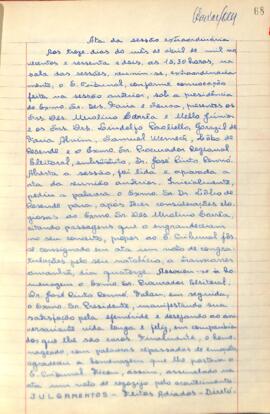 68
Ata da sessão extraordinária
Aos treze dias do mês de abril de mil no
vecentos e sessenta e dois, às 15,30 horas, na
sala das sessões, reuniu-se, extraordinaria
mente, o E. Tribunal, conforme convocação
feita na sessão anterior, sob a presidência
do Exmo. Sr. Des. Faria e Sousa, presentes os
Exmos. Srs. Des. Merolino Corrêa e Mello Júnior
e os Srs. Drs. Lindolfo Paoliello,
de Rezende e o Exmo. Sr. Procurador Regional
Eleitoral, substituto, Dr. José Pinto Renó.
Aberta a sessão, foi lida e aprovada a
ata da reunião anterior. Inicialmente,
pediu a palavra o Exmo. Sr. Dr. Fábio de
Rezende para, após tecer considerações elo
giosas ao Exmo. Sr. Des. Merolino Corrêa,
citando passagens que o engrandeceram
no seu conceito, propor ao E. Tribunal fôs
se consignado em ata um voto de congra
tulações pelo seu natalício, a transcorrer
amanhã, dia quatorze. Associou-se à ho
menagem o Exmo. Sr. Procurador Eleitoral,
Dr. José Pinto Renó. Falou, em seguida,
o Exmo. Sr. Presidente, manifestando sua
satisfação pela efeméride e desejando ao ani
versariante vida longa e feliz, em companhia
dos que lhe são caros. Finalmente, o home
nageado, com palavras repassadas de emoção,
agradeceu a homenagem que lhe prestou o
E. Tribunal. Ficou, assim, assinalado na
ata um voto de regozijo pelo acontecimento.
JULGAMENTOS - Feitos Adiados -